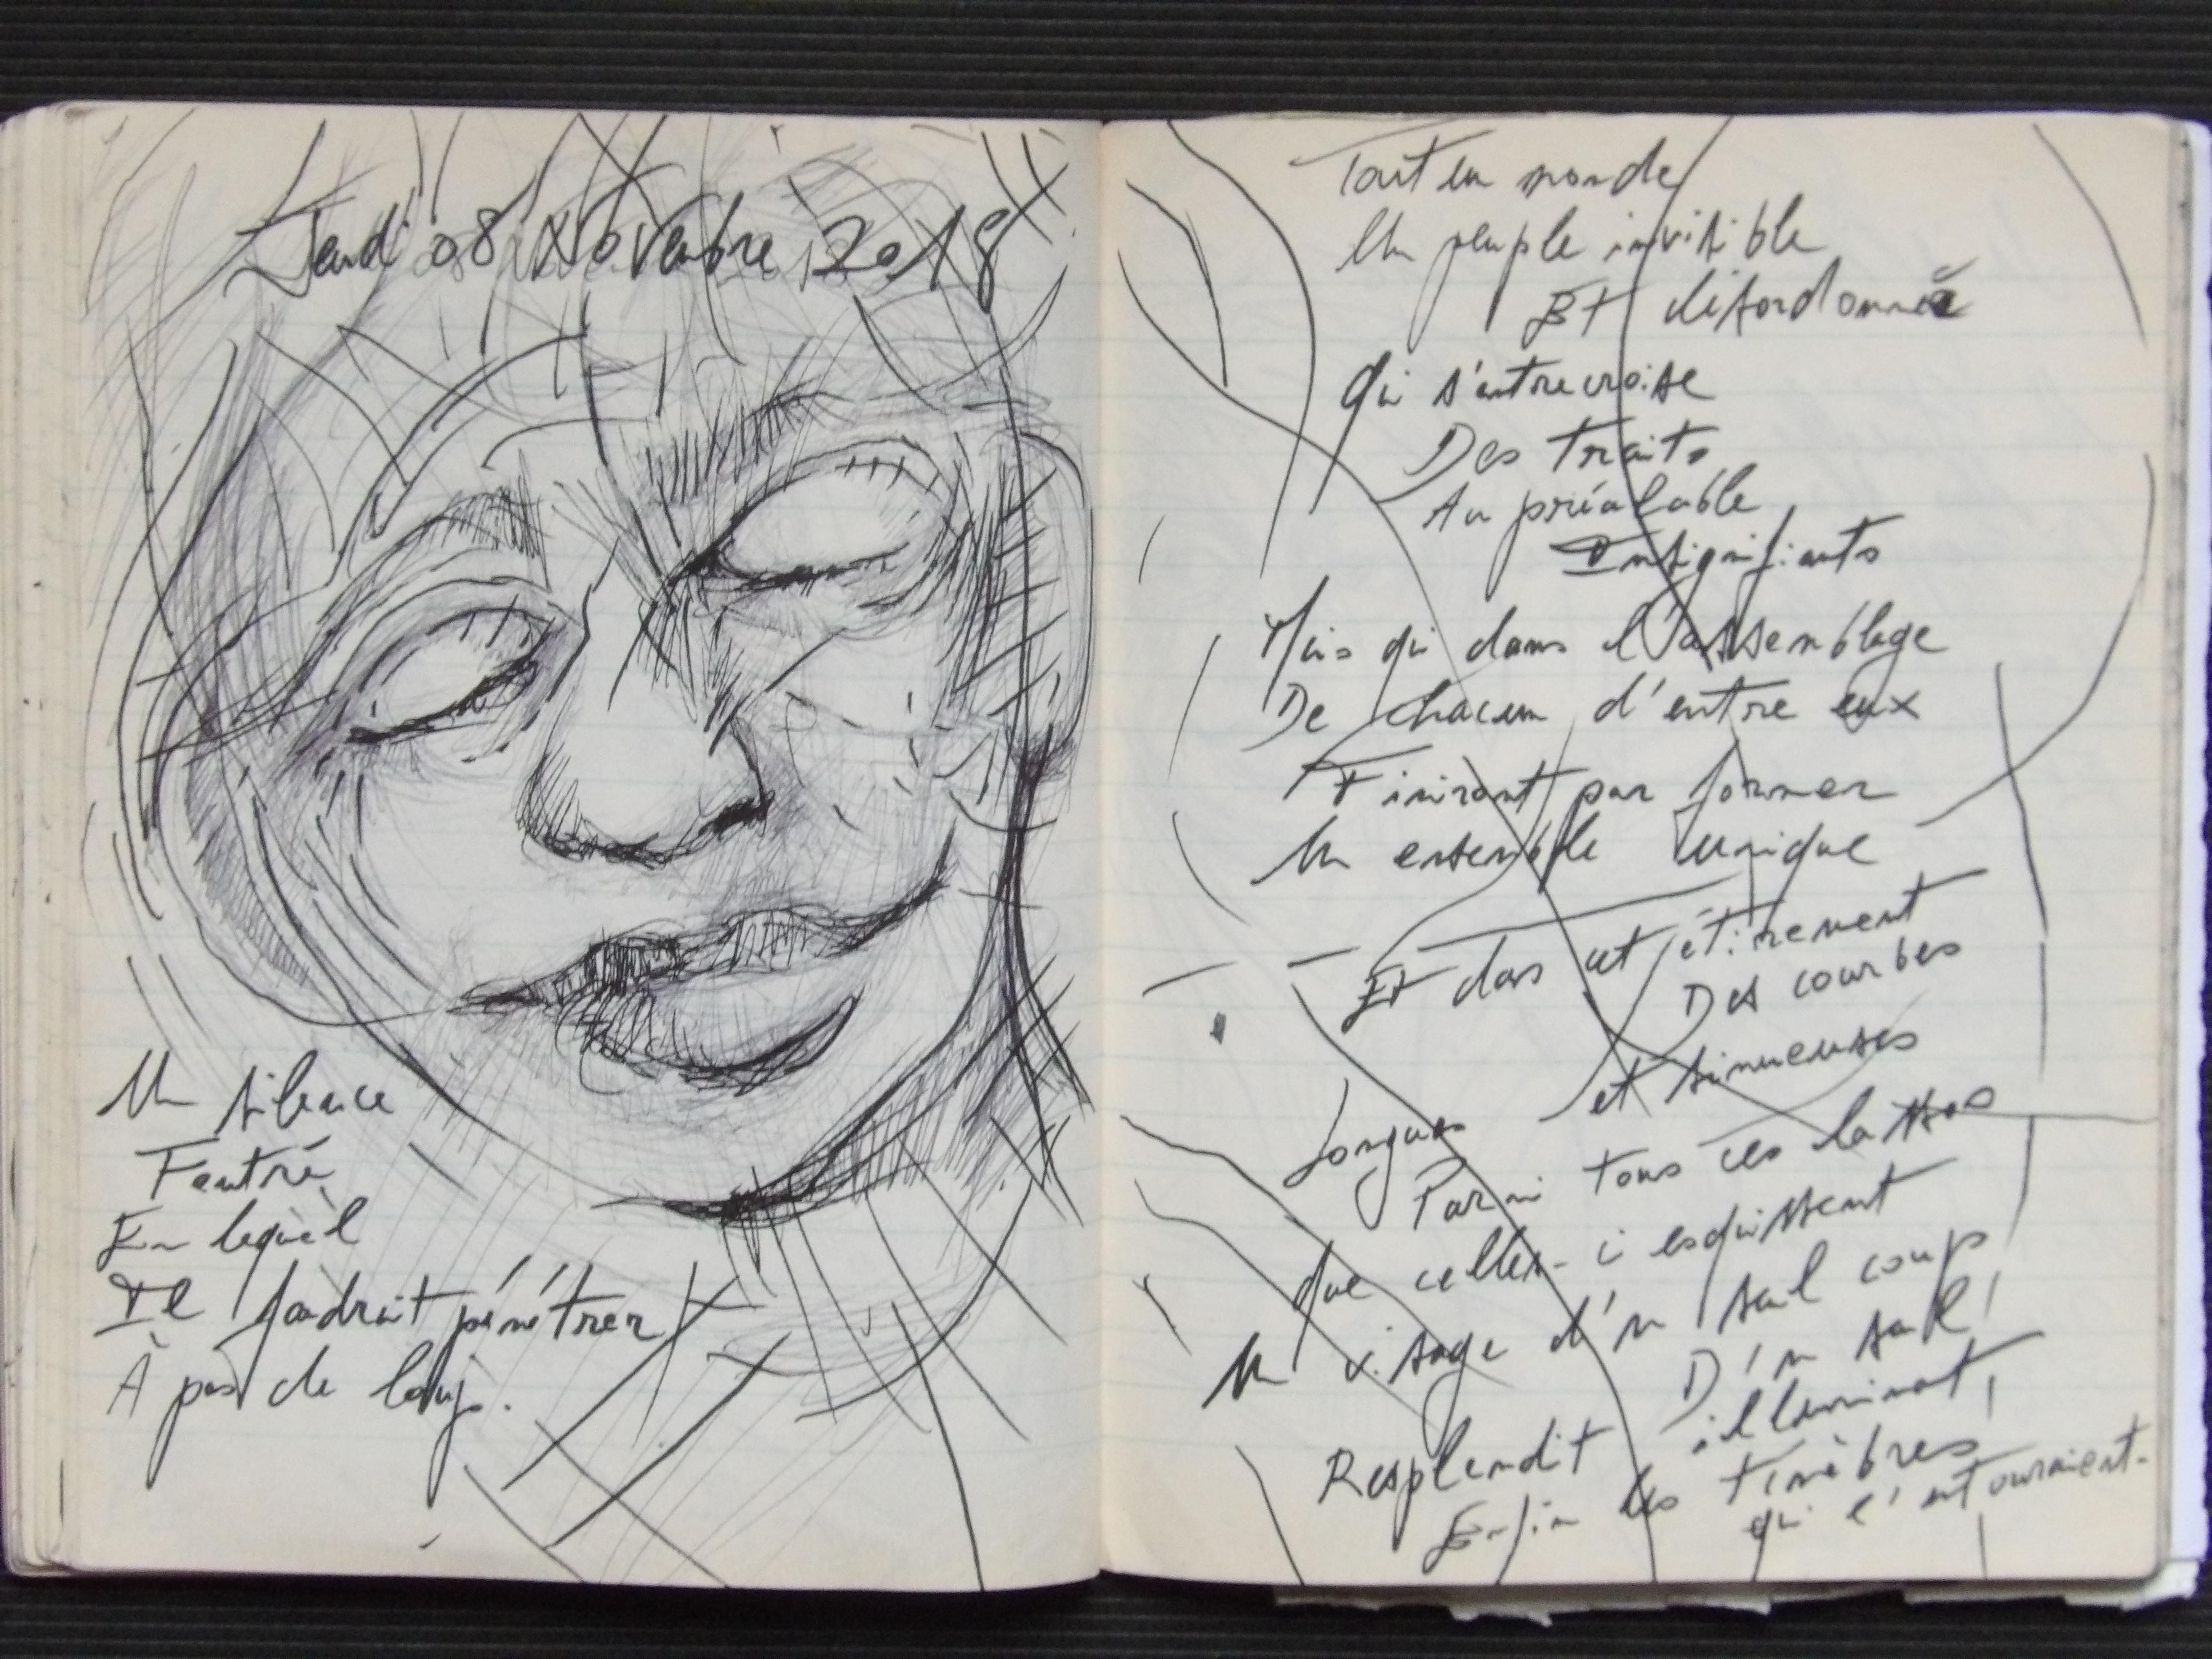 Jeudi 08 Novembre 2018
Un silence
Feutré
En lequel
Il faudrait pénétrer
À pas de loup.
Tout un monde
Un peuple invisible
Et désordonné
Qui s'entrecroise
Des traits
Au préalable
Insignifiants
Mais qui dans l'assemblage
De chacun d'entre eux
Finiront par former
Un ensemble unique
Et dans cet étirement
Des courbes
Longues et sinueuses
Parmi tous ces
Que celles-ci esquissent
Un visage d'un seul coup
D'un seul
Resplendit illuminant,
Enfin les ténèbres
qui l'entouraient.